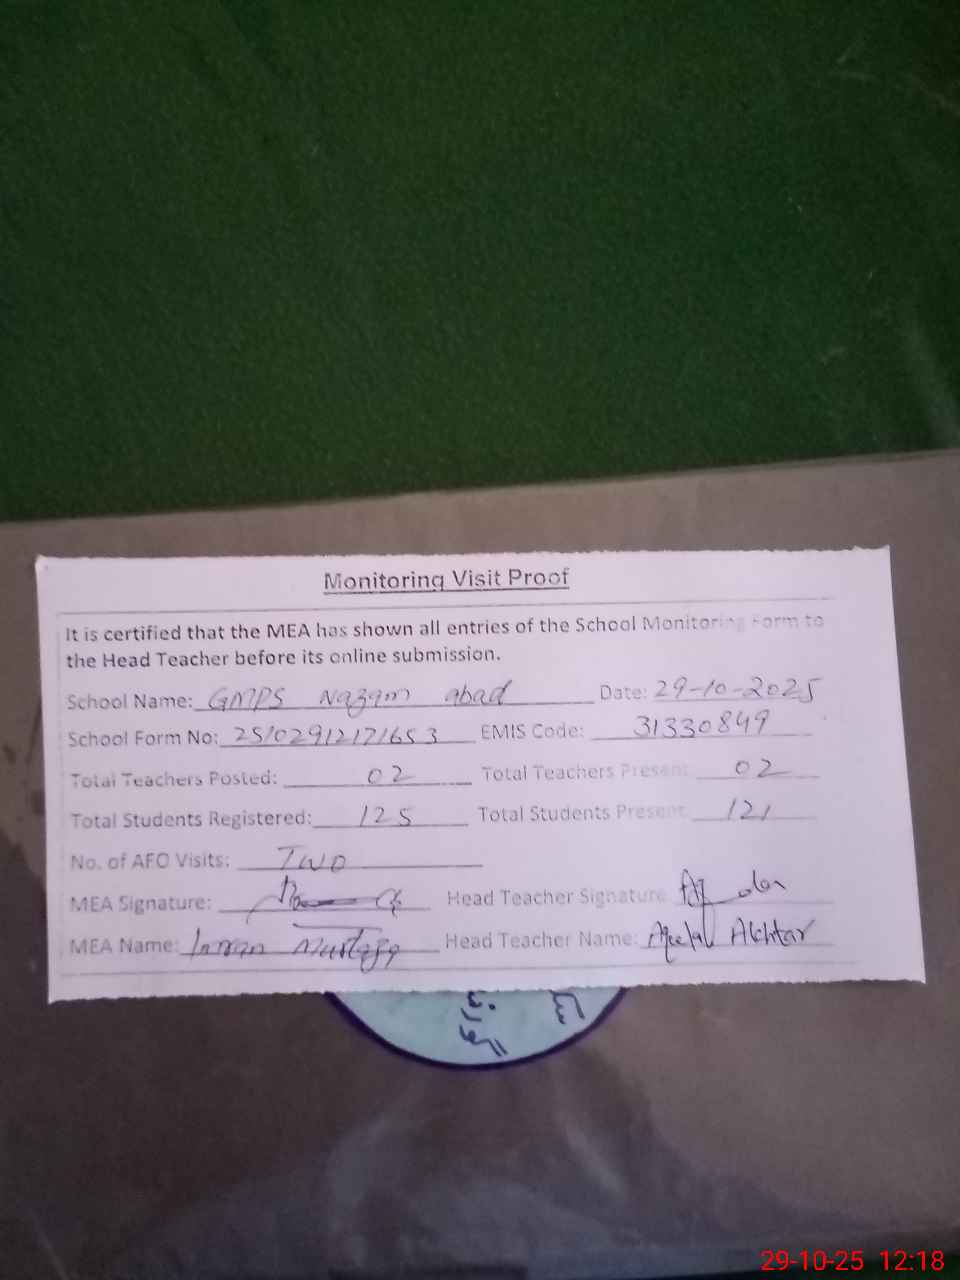 Monitoring Visit Proof
It is certified that the MEA has shown all entries of the School Monitoring Form to
the Head Teacher before its online submission.
School Name: GMPS Nazam abad Date: 29-10-2025
School Form No: 25102912171653 EMIS Code: 31330849
Total Teachers Posted: 02 Total Teachers Present: 02
Total Students Registered: 125 Total Students Present: 121
No. of AFO Visits: Two
MEA Signature: Head Teacher Signature
MEA Name: Imran Mustafa Head Teacher Name: Akhtar
29-10-25 12:18